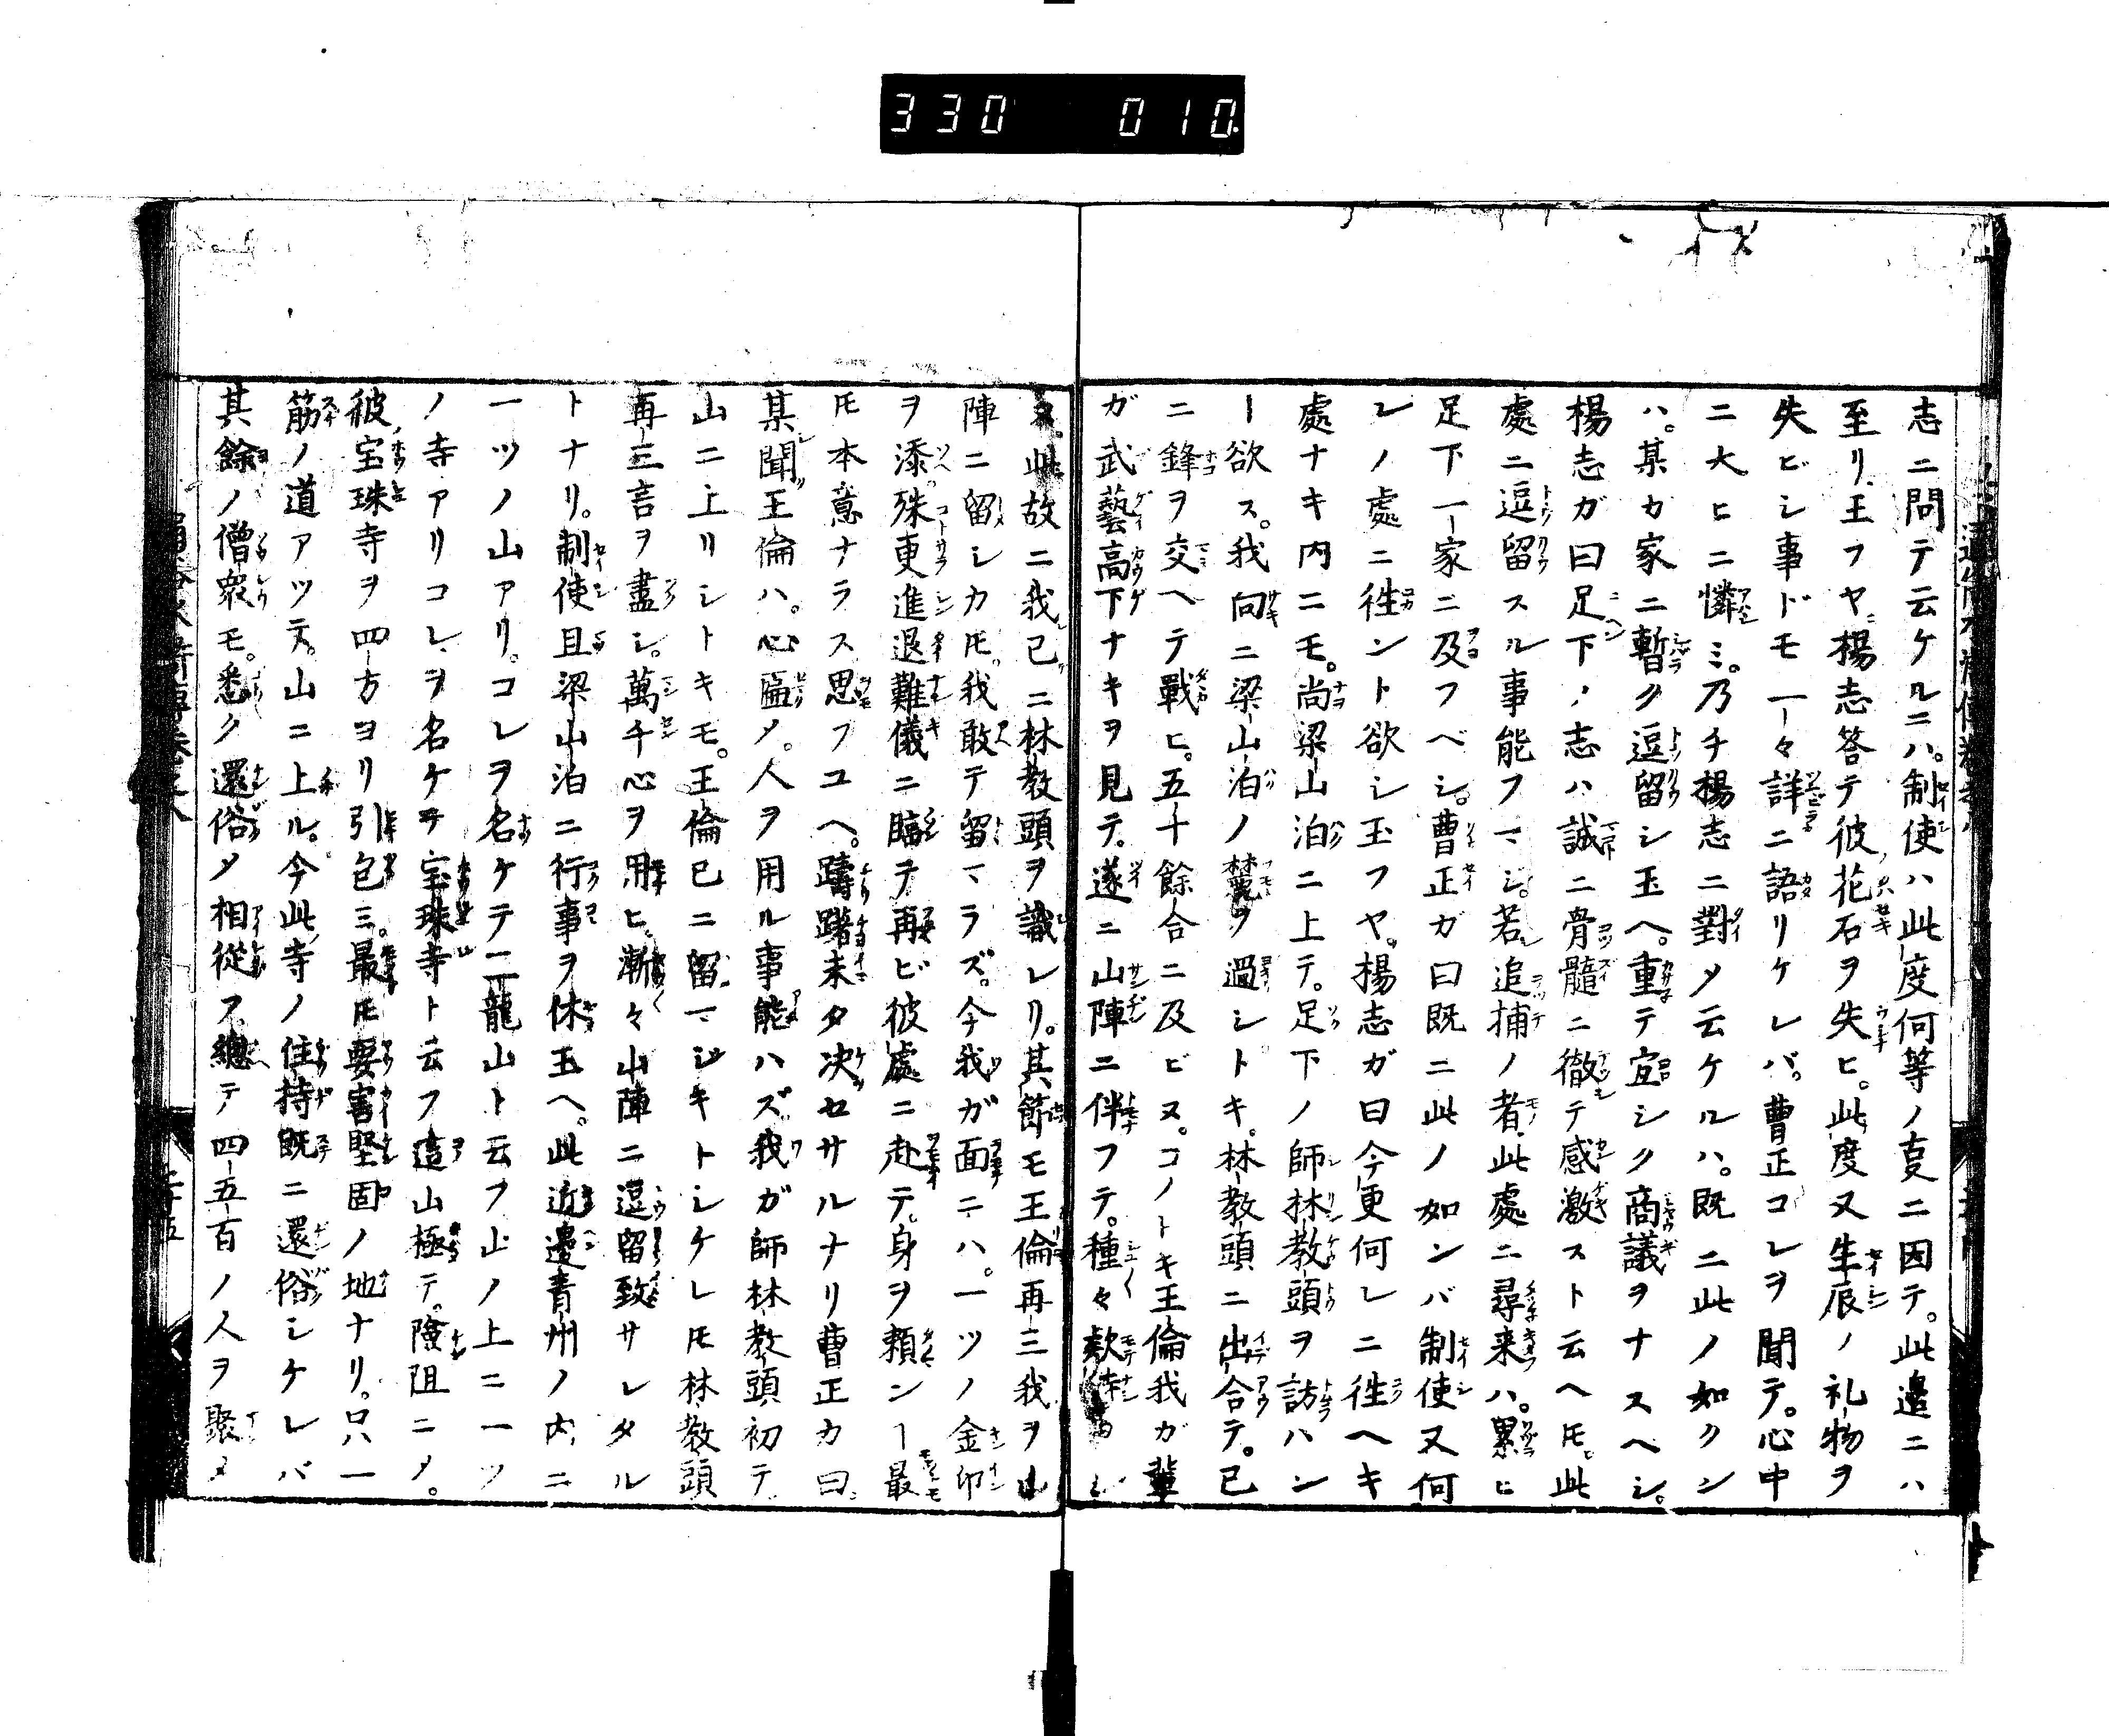 330 010
志ニ問テ云ケルニハ。制使ハ此度何等ノ叓ニ因テ。此邉ニハ
至リ王フヤ楊志答テ彼花石ヲ失ヒ。此度又生辰ノ礼物ヲ
失ビシ事ドモ一々詳ニ語リケレバ。曹正コレヲ聞テ。心中
ニ大ヒニ憐ミ。乃チ楊志ニ對メ云ケルハ。既ニ此ノ如クン
ハ。某カ家ニ暫ク逗留シ玉ヘ。重テ宜シク商議ヲナスヘシ。
楊志ガ曰足下ノ志ハ誠ニ骨髓ニ徹テ感激スト云ヘ𪜈。此
處ニ逗留スル事能フマジ。若追捕ノ者此處ニ尋来ハ。累ヒ
足下一家ニ及フベシ。曹正ガ曰既ニ此ノ如ンバ制使又何
レノ處ニ徃ント欲シ玉フヤ。楊志ガ曰今更何レニ徃ヘキ
處ナキ内ニモ。尚梁山泊ニ上テ。足下ノ師林教頭ヲ訪ハン
ヿ欲ス。我向ニ梁山泊ノ麓ヲ過シトキ。林教頭ニ出合テ。已
ニ鋒ヲ交ヘテ戰ヒ。五十餘合ニ及ビヌ。コノトキ王倫我ガ輩
ガ武藝高下ナキヲ見テ。遂ニ山陣ニ伴フテ。種々欵待
此故ニ我已ニ林教頭ヲ識レリ。其節モ王倫再三我ヲ山
陣ニ留シカ𪜈。我敢テ留マラズ。今我ガ面ニハ。一ツノ金印
ヲ添殊更進退難儀ニ臨テ再ビ彼處ニ赴テ。身ヲ頼ンヿ最
𪜈本意ナラス思フユヘ。躊躇未タ决セサルナリ曹正カ曰
某聞王倫ハ。心匾メ。人ヲ用ル事能ハズ。我ガ師林教頭初テ
山ニ上リシトキモ。王倫已ニ留マジキトシケレ𪜈林教頭
再三言ヲ盡シ。萬千心ヲ用ヒ。漸々山陣ニ逗留致サレタル
トナリ。制使且梁山泊ニ行事ヲ休玉ヘ。此近邉青州ノ内ニ
一ツノ山アリ。コレヲ名ケテ二龍山ト云フ山ノ上ニ一ツ
ノ寺アリコレヲ名ケテ宝珠寺ト云フ這山極テ。險阻ニメ。
彼宝珠寺ヲ四方ヨリ引包ミ。最𪜈要害堅固ノ地ナリ。只一
筋ノ道アツテ。山ニ上ル。今此寺ノ住持既ニ還俗シケレバ
其餘ノ僧衆モ。悉ク還俗メ相從フ。總テ四五百ノ人ヲ聚メ